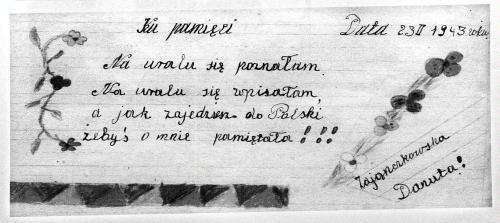 Ku pamięci
Data 23 II 1943 roku.
Na uralu się poznałam.
Na uralu się wpisałam,
a jak zajedzien do Polski
żebyś o mnie pamiętała!!!
Zajączkowska
Danuta!